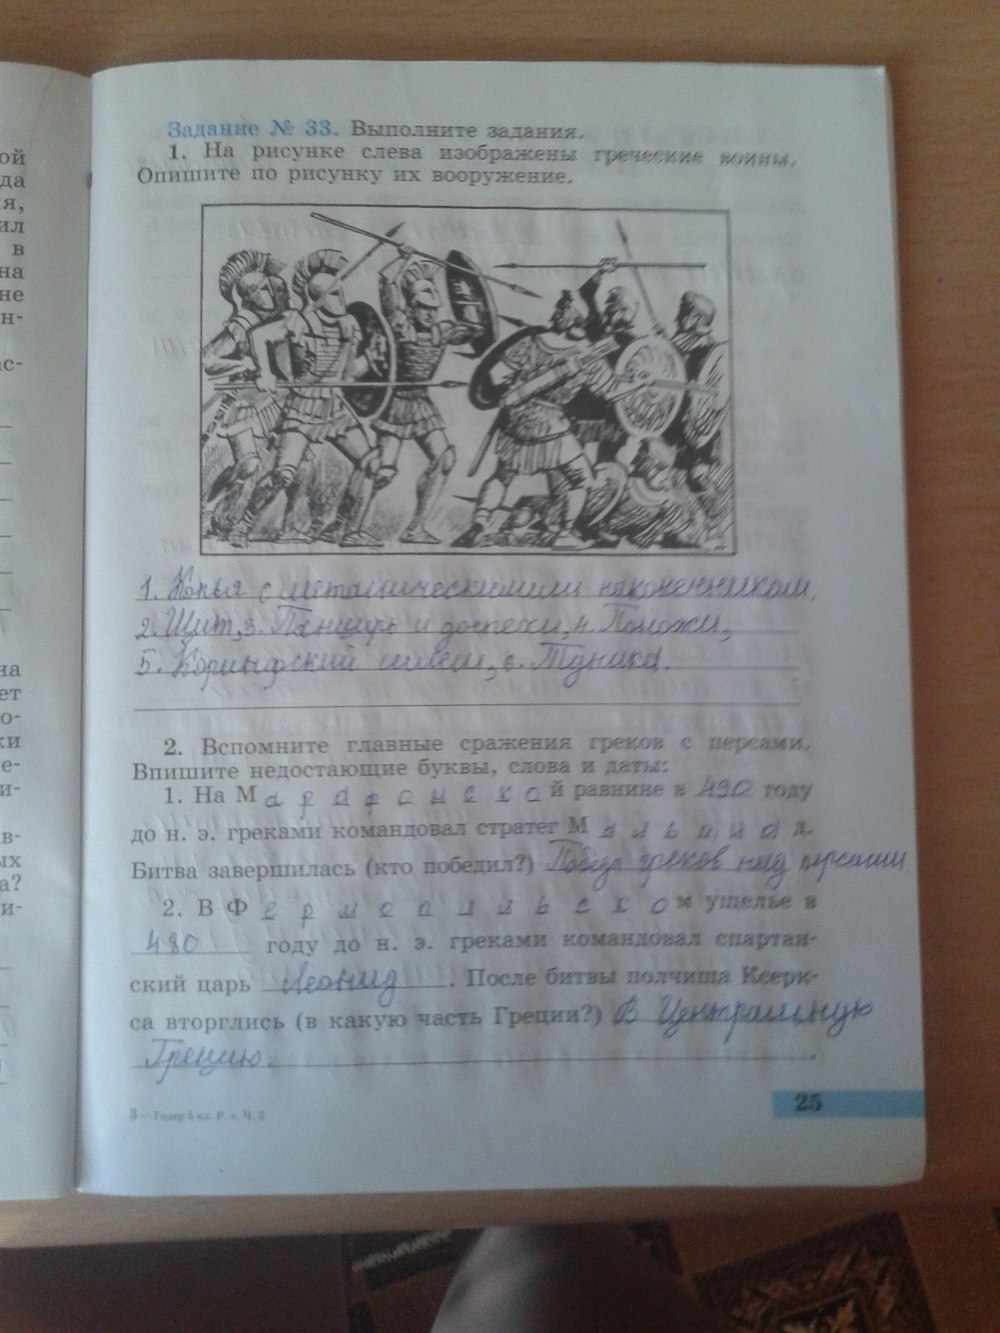 ой
да
я,
ил
в
на
не
н-
ас-
на
ет
о-
ки
е-
и-
ав-
ых
а?
и-
Задание № 33. Выполните задания.
1. На рисунке слева изображены греческие воины.
Опишите по рисунку их вооружение.
1. Копья с наконечником.
2. Щит, 3. Панцирь и доспехи, 4. Поножи,
5. Коринфский шлем, 6. Туника.
2. Вспомните главные сражения греков с персами.
Впишите недостающие буквы, слова и даты:
1. На М а р а ф о н с к о й равнине в 490 году
до н. э. греками командовал стратег М и л ь т и а д.
Битва завершилась (кто победил?) Победа греков над персами
2. В Ф е р м о п и л ь с к о м ущелье в
480 году до н. э. греками командовал спартан-
ский царь Леонид. После битвы полчища Ксерк-
са вторглись (в какую часть Греции?) В Центральную
Грецию.
3 — Годер 5 кл. Р. т. Ч. 2
25